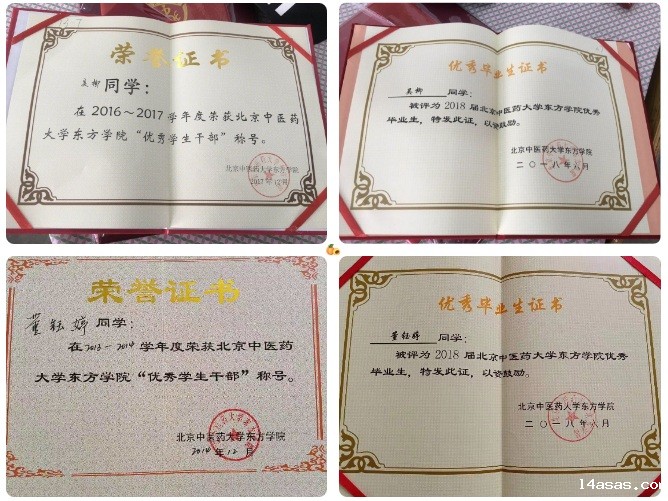 荣誉证书
吴柳 同学：
在 2016～2017 学年度荣获北京中医药
大学东方学院“优秀学生干部”称号。
北京中医药大学东方学院
2017年12月
优秀毕业生证书
吴柳 同学：
被评为 2018 届北京中医药大学东方学院优秀
毕业生，特发此证，以资鼓励。
北京中医药大学东方学院
二〇一八年六月
荣誉证书
董钰婷 同学：
在2013-2014学年度荣获北京中医药
大学东方学院“优秀学生干部”称号。
北京中医药大学东方学院
2014 年 12 月
优秀毕业生证书
董钰婷 同学：
被评为 2018 届北京中医药大学东方学院优秀
毕业生，特发此证，以资鼓励。
北京中医药大学东方学院
二〇一八年六月
14asas.com